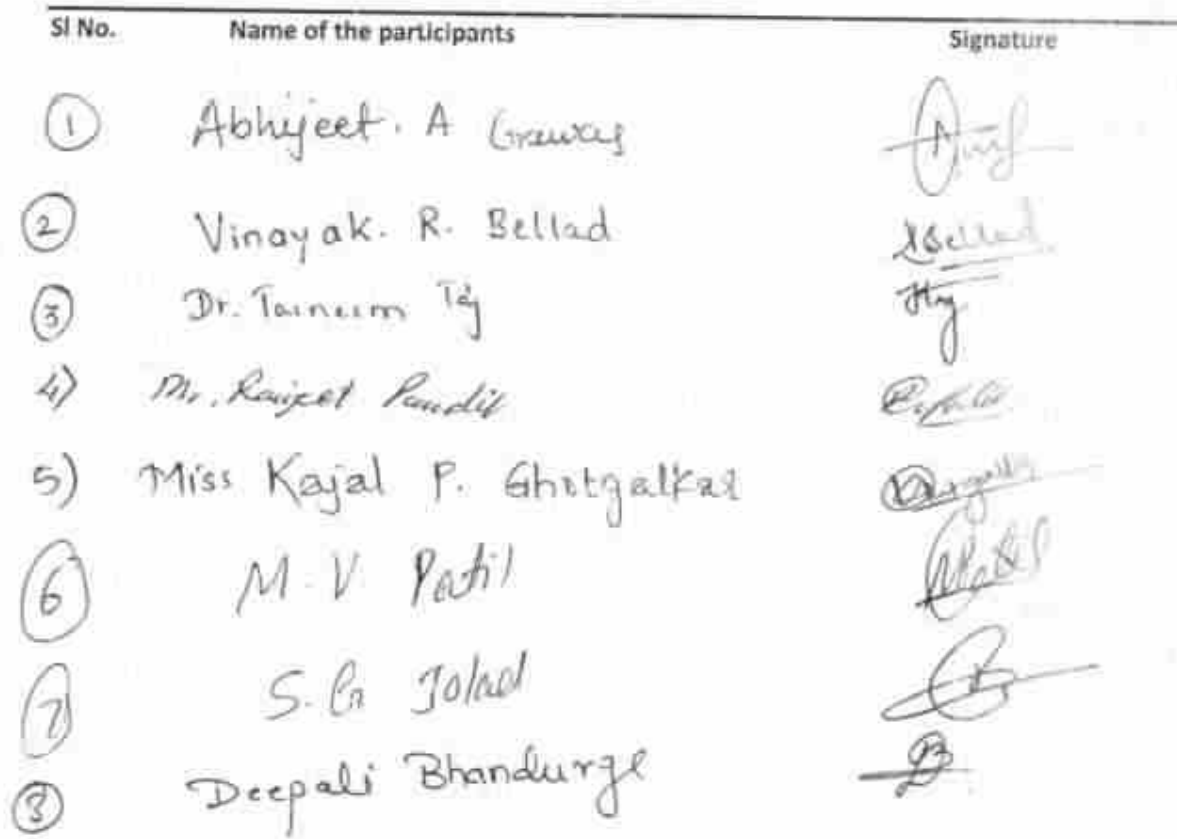 Sl No. Name of the participants Signature
1 Abhijeet. A
2 Vinayak. R. Bellad Bellad
3 Dr. Tajneem Taj
4) Mr. Ranjeet Pandit
5) Miss Kajal P. Ghotgalkar
6 M. V. Patil Patil
7 S. G Jolad
8 Deepali Bhandurge